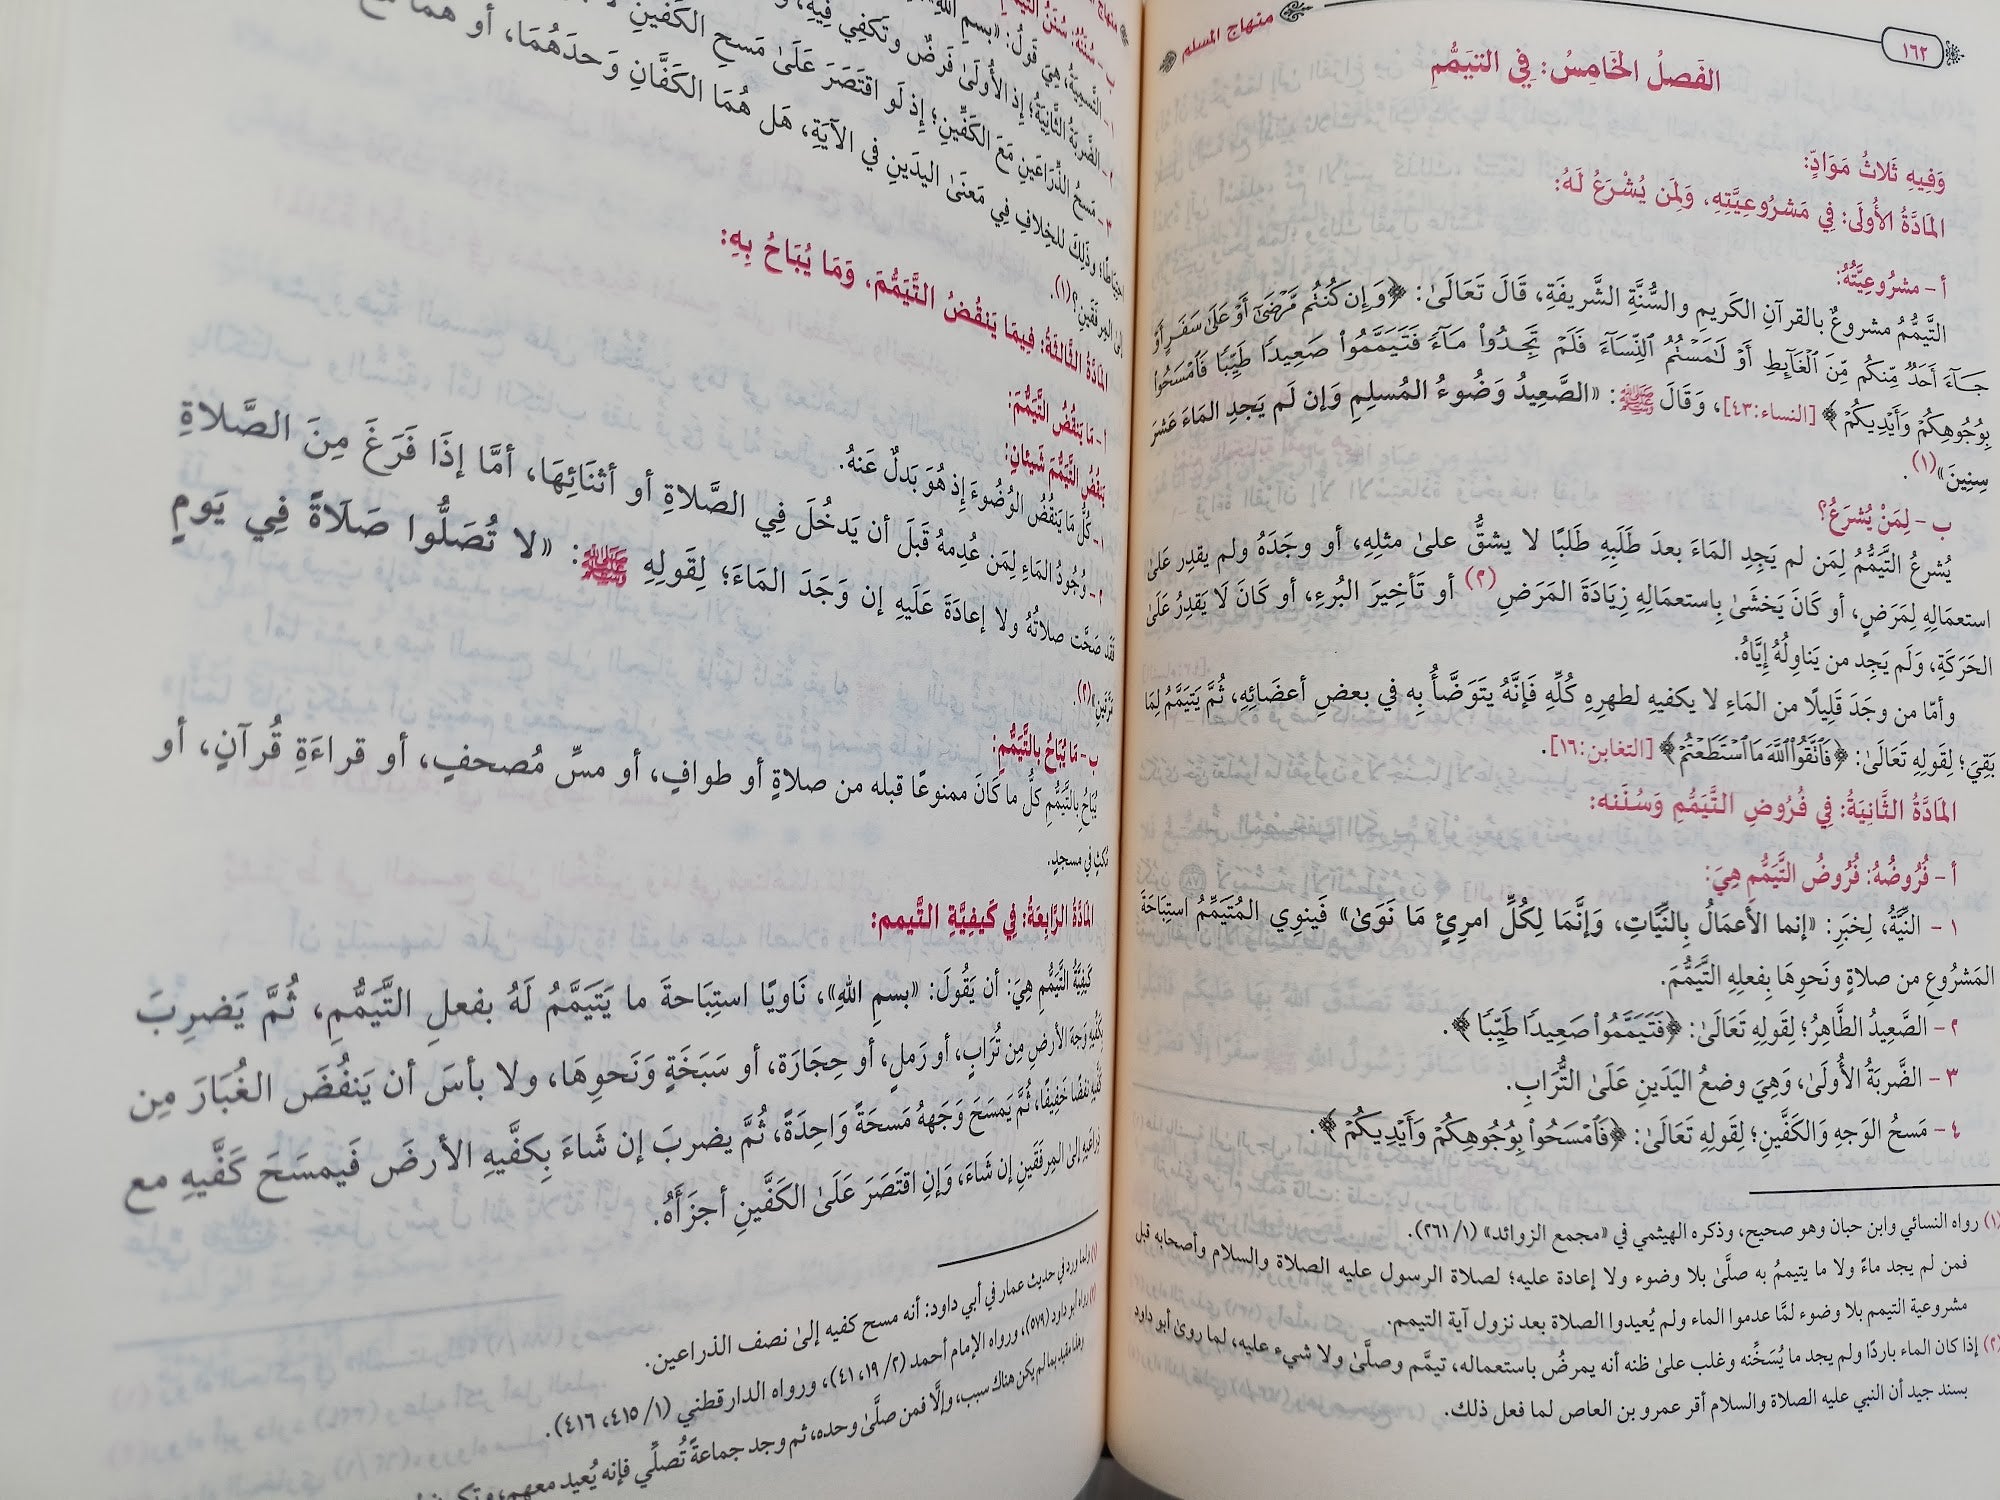 ١٦٢
منهاج المسلم
الفَصلُ الخَامِسُ: فِي التيَمُّمِ
وَفِيهِ ثَلاثُ مَوَادٍّ:
المَادَّةُ الأُولَى: فِي مَشرُوعِيَّتِهِ، وَلِمَن يُشْرَعُ لَهُ:
أ - مشرُوعِيَّتُهُ:
التَّيَمُّمُ مشروعٌ بالقرآنِ الكَريمِ والسُّنَّةِ الشَّريفَةِ، قَالَ تَعَالَىٰ: ﴿وَإِن كُنتُم مَّرْضَىٰٓ أَوْ عَلَىٰ سَفَرٍ أَوْ
جَآءَ أَحَدٌ مِّنكُم مِّنَ ٱلْغَآئِطِ أَوْ لَٰمَسْتُمُ ٱلنِّسَآءَ فَلَمْ تَجِدُوا۟ مَآءً فَتَيَمَّمُوا۟ صَعِيدًا طَيِّبًا فَٱمْسَحُوا۟
بِوُجُوهِكُمْ وَأَيْدِيكُمْ﴾ [النساء:٤٣]، وَقَالَ ﷺ: «الصَّعِيدُ وَضُوءُ المُسلِمِ وَإن لَم يَجدِ المَاءَ عَشرَ
سِنِينَ»(١).
ب - لِمَنْ يُشرَعُ؟
يُشرعُ التَّيَمُّمُ لِمَن لم يَجِدِ المَاءَ بعدَ طَلَبِهِ طَلَبًا لا يشقُّ علىٰ مثلِهِ، أو وجَدَهُ ولم يقدِر عَلىٰ
استعمَالِهِ لِمَرَضٍ، أو كَانَ يَخشَىٰ بِاستعمَالِهِ زِيَادَةَ المَرَضِ(٢) أو تَأخِيرَ البُرءِ، أو كَانَ لَا يَقدِرُ عَلَىٰ
الحَرَكَةِ، وَلَم يَجِد من يَناوِلُهُ إيَّاهُ.
وأمّا من وجَدَ قَلِيلًا من المَاءِ لا يكفيهِ لطهرِهِ كُلِّهِ فَإنَّهُ يتَوَضَّأُ بِه في بعضِ أعضَائِهِ، ثُمَّ يَتيَمَّمُ لِمَا
بَقِيَ؛ لِقَولِهِ تَعَالَىٰ: ﴿فَٱتَّقُوا۟ ٱللَّهَ مَا ٱسْتَطَعْتُمْ﴾ [التغابن:١٦].
المَادَّةُ الثَّانِيَةُ: فِي فُرُوضِ التَّيَمُّمِ وَسُنَنه:
أ - فُرُوضُهُ: فُرُوضُ التَّيَمُّمِ هِيَ:
١ - النِّيَّةُ، لِخبَرِ: «إنما الأعمَالُ بِالنِّيَّاتِ، وَإنَّمَا لِكُلِّ امرِئٍ مَا نَوَىٰ» فَينوِي المُتَيَمِّمُ استِبَاحَةَ
المَشرُوعِ من صلاةٍ ونَحوِهَا بِفعلِهِ التَّيَمُّمَ.
٢ - الصَّعِيدُ الطَّاهِرُ؛ لِقَولِهِ تَعَالَىٰ: ﴿فَتَيَمَّمُوا۟ صَعِيدًا طَيِّبًا﴾.
٣ - الضَّربَةُ الأُولَىٰ، وَهِيَ وضعُ اليَدَينِ عَلَىٰ التُّرَابِ.
٤ - مَسحُ الوَجهِ وَالكَفَّينِ؛ لِقَولِهِ تَعَالَىٰ: ﴿فَٱمْسَحُوا۟ بِوُجُوهِكُمْ وَأَيْدِيكُمْ﴾.
(١) رواه النسائي وابن حبان وهو صحيح، وذكره الهيثمي في «مجمع الزوائد» (١/ ٢٦١).
فمن لم يجد ماءً ولا ما يتيممُ به صلَّىٰ بلا وضوء ولا إعادة عليه؛ لصلاة الرسول عليه الصلاة والسلام وأصحابه قبل
مشروعية التيمم بلا وضوء لمَّا عدموا الماء ولم يُعيدوا الصلاة بعد نزول آية التيمم.
(٢) إذا كان الماء باردًا ولم يجد ما يُسَخِّنه وغلب علىٰ ظنه أنه يمرضُ باستعماله، تيمَّم وصلَّىٰ ولا شيء عليه، لما روىٰ أبو داود
بسند جيد أن النبي عليه الصلاة والسلام أقر عمرو بن العاص لما فعل ذلك.
ب - سُنَنُهُ: سُنَنُ
١ - التَّسمِيَةُ، هِيَ قَولُ: «بِسمِ اللهِ
٢ - الضَّربَةُ الثَّانِيَةُ؛ إذِ الأُولَىٰ فَرضٌ وَتَكفِي فِيهِ،
٣ - مَسحُ الذِّرَاعَينِ مَعَ الكَفَّينِ؛ إذ لَو اقتَصَرَ عَلَىٰ مَسحِ الكَفَّينِ
احتِيَاطًا؛ وذَلِكَ للخِلافِ فِي مَعنَىٰ اليدَينِ في الآيَةِ، هَل هُمَا الكَفَّانِ وَحدَهُمَا، أو هما
إلى المِرفَقَينِ؟(١).
المَادَّةُ الثَّالثَةُ: فِيمَا يَنقُضُ التَّيَمُّمَ، وَمَا يُبَاحُ بِهِ:
أ - مَا يَنقُضُ التَّيَمُّمَ:
يَنقُضُ التَّيَمُّمَ شَيئَانِ:
١ - كُلُّ مَا يَنقُضُ الوُضُوءَ إذ هُوَ بَدلٌ عَنهُ.
٢ - وُجُودُ المَاءِ لِمَن عُدِمهُ قَبلَ أن يَدخُلَ فِي الصَّلاةِ أو أثنَائِهَا، أمَّا إذَا فَرَغَ مِنَ الصَّلاةِ
فَقَد صَحَّت صلاتُهُ ولا إعادَةَ عَلَيهِ إن وَجَدَ المَاءَ؛ لِقَولِهِ ﷺ: «لا تُصَلُّوا صَلَاةً فِي يَومٍ
مَرَّتَينِ»(٢).
ب - مَا يُبَاحُ بِالتَّيَمُّمِ:
يُبَاحُ بِالتَّيَمُّمِ كلُّ ما كَانَ ممنوعًا قبله من صلاةٍ أو طوافٍ، أو مسِّ مُصحفٍ، أو قراءَةِ قُرآنٍ، أو
مُكثٍ في مسجدٍ.
المَادَّةُ الرَّابِعَةُ: فِي كَيفِيَّةِ التَّيمم:
كَيفِيَّةُ التَّيَمُّمِ هِيَ: أن يَقُولَ: «بسمِ اللهِ»، نَاويًا استِبَاحةَ ما يَتَيَمَّمُ لَهُ بفعلِ التَّيَمُّمِ، ثُمَّ يَضرِبَ
بِكَفَّيهِ وَجهَ الأرضِ مِن تُرَابٍ، أو رَملٍ، أو حِجَارَة، أو سَبَخَةٍ وَنَحوِهَا، ولا بأسَ أن يَنفُضَ الغُبَارَ مِن
كَفَّيهِ نفضًا خَفِيفًا، ثُمَّ يَمسَحَ وَجهَهُ مَسحَةً وَاحِدَةً، ثُمَّ يضربَ إن شَاءَ بِكفَّيهِ الأرضَ فَيمسَحَ كَفَّيهِ مع
ذِرَاعَيهِ إلى المِرفَقَينِ إن شَاءَ، وَإنِ اقتَصَرَ عَلَىٰ الكَفَّينِ أجزَأَهُ.
(١) ولما ورد في حديث عمار في أبي داود: أنه مسح كفيه إلىٰ نصف الذراعين.
(٢) رواه أبو داود (٥٧٩)، ورواه الإمام أحمد (٢/ ١٩، ٤١)، ورواه الدارقطني (١/ ٤١٥، ٤١٦).
وهذا مقيد بما لم يكن هناك سبب، وإلَّا فمن صلَّىٰ وحده، ثم وجد جماعةً تُصلِّي فإنه يُعيد معهم،